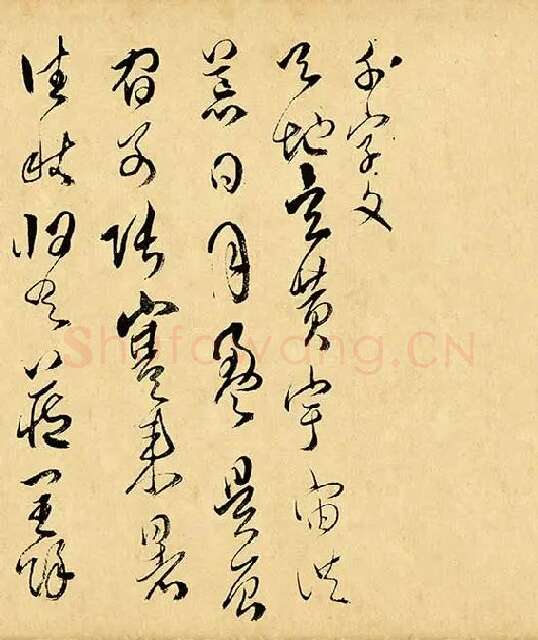 千字文
天地玄黃宇宙洪
荒日月盈昃辰
宿列張寒來暑
往秋收冬藏閏餘
Shufawang.CN